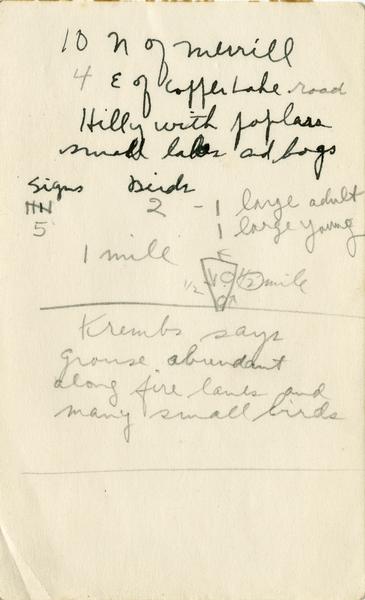 10 N of Merrill
4 E of Copper Lake road
Hilly with poplars
small lakes and bogs
Signs Birds
5 2 - 1 large adult
1 large young
1 mile
E
1/2 1/2 mile
Krembs says
Grouse abundant
along fire lanes and
many small birds